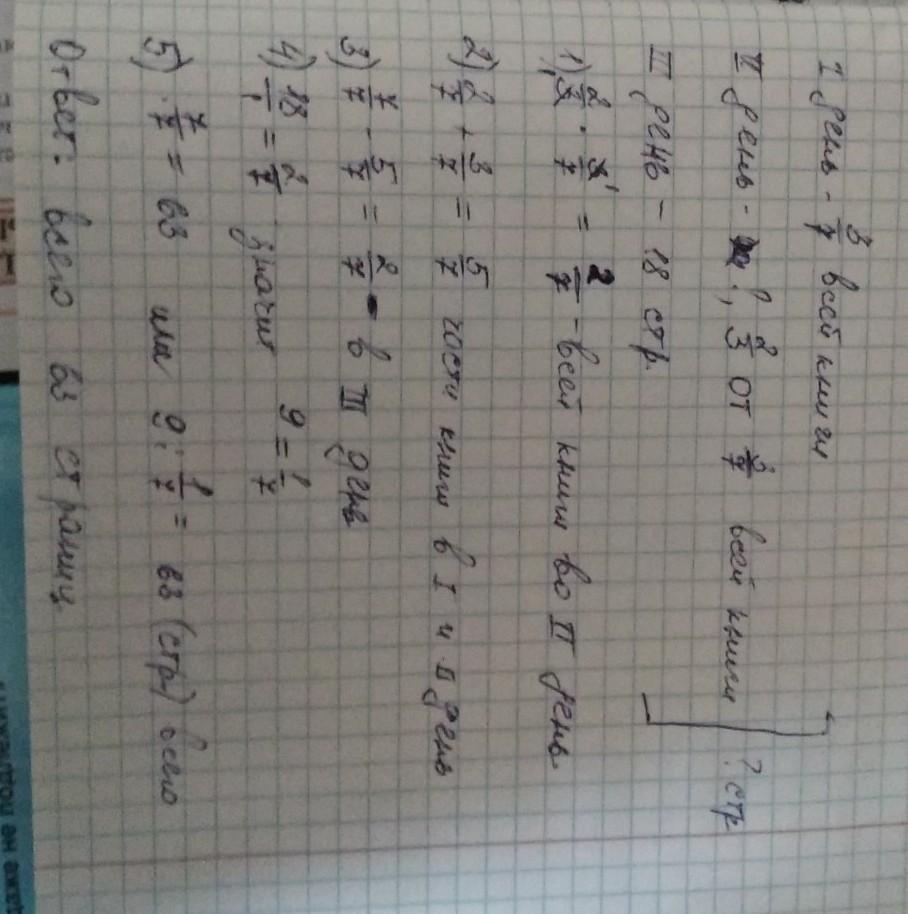 I день - 3/7 всей книги
II день - ?, 2/3 от 3/7 всей книги ? стр
III день - 18 стр.
1) 2/3 · 3/7 = 2/7 - всей книги во II день.
2) 2/7 + 3/7 = 5/7 части книги в I и II день
3) 7/7 - 5/7 = 2/7 - в III день
4) 18/1 = 2/7 значит 9 = 1/7
5) 7/7 = 63 или 9 : 1/7 = 63 (стр) всего
Ответ: всего 63 страниц.